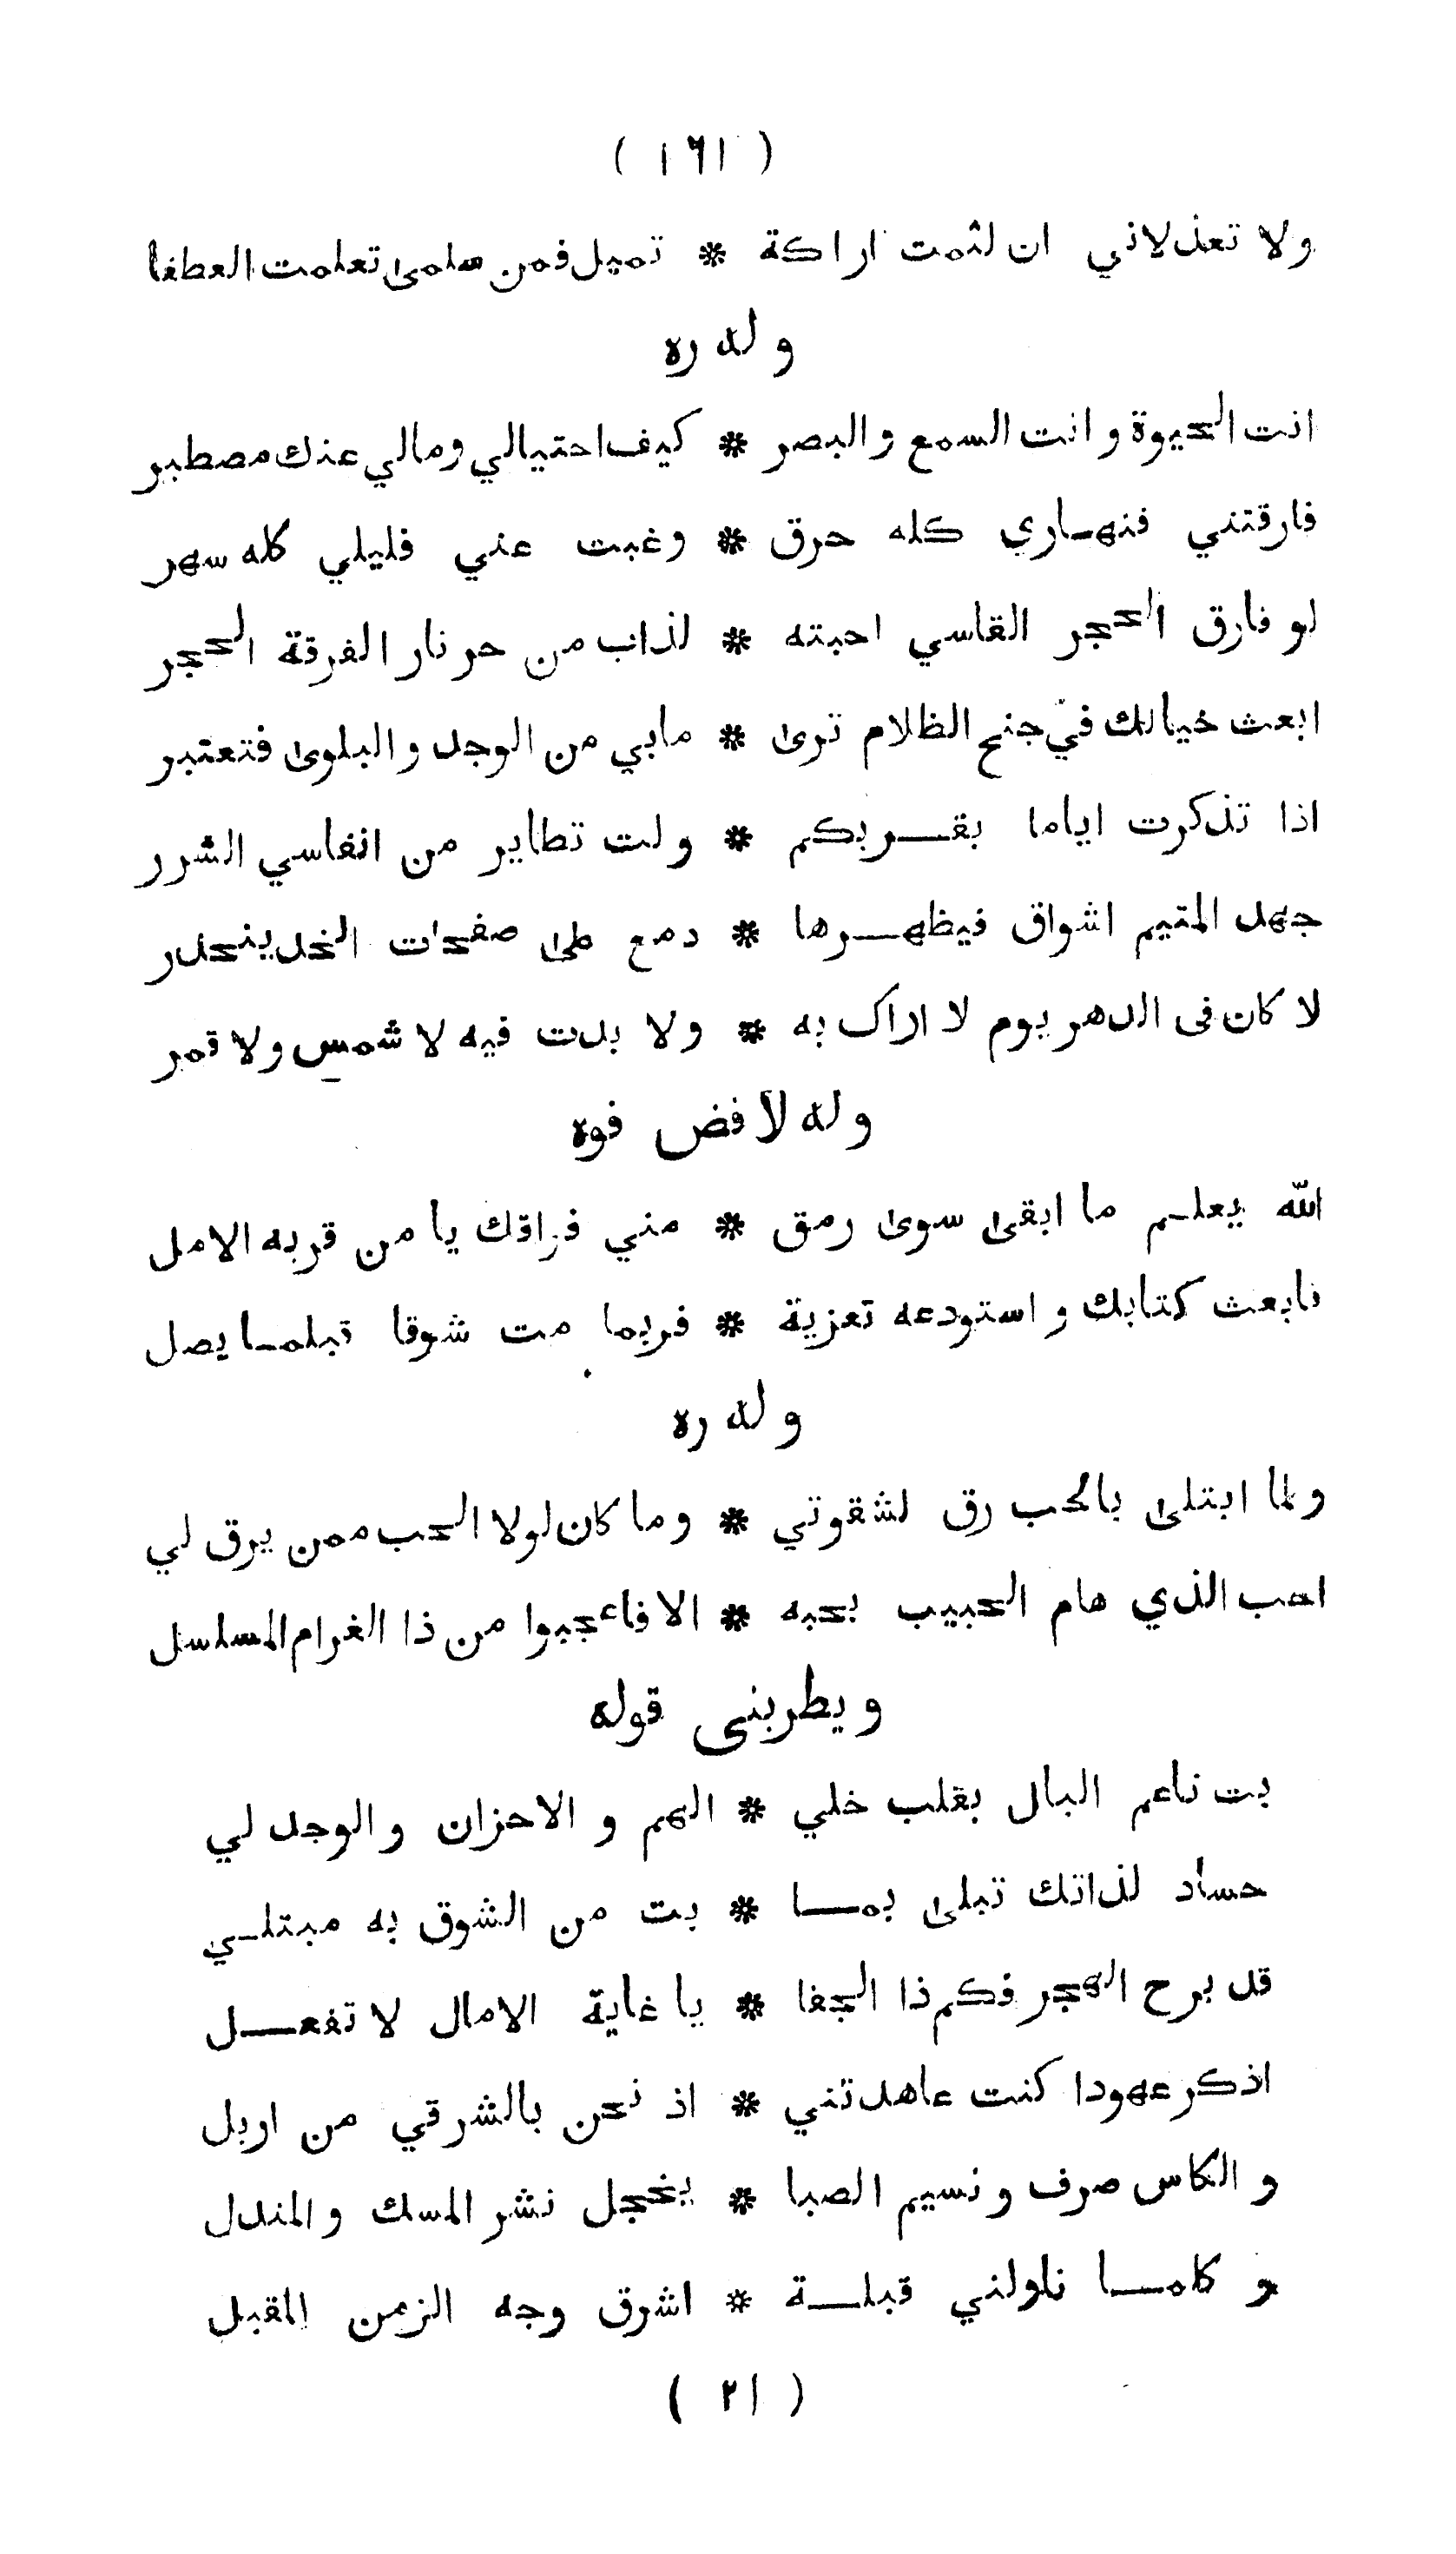 ( ١٦١ )
ولا تعذلاني ان لثمت اراكة * تميل فمن سلمى تعلمت العطفا
وله ره
انت الحيوة وانت السمع والبصر * كيف احتيالي ومالي عنك مصطبر
فارقتني فنهاري كله حرق * وغبت عني فليلي كله سهر
لو فارق الحجر القاسي احبته * لذاب من حر نار الفرقة الحجر
ابعث خيالك في جنح الظلام ترى * مابي من الوجد والبلوى فتعتبر
اذا تذكرت اياما بقربكم * ولت تطاير من انفاسي الشرر
جهد المتيم اشواق فيظهرها * دمع على صفحات الخد ينحدر
لا كان فى الدهر يوم لا اراك به * ولا بدت فيه لا شمس ولا قمر
وله لا فض فوه
الله يعلم ما ابقى سوى رمق * مني فراقك يا من قربه الامل
فابعث كتابك واستودعه تعزية * فربما مت شوقا قبلما يصل
وله ره
ولما ابتلى بالحب رق لشقوتي * وما كان لولا الحب ممن يرق لي
احب الذي هام الحبيب بحبه * الا فاعجبوا من ذا الغرام المسلسل
ويطربنى قوله
بت ناعم البال بقلب خلي * الهم و الاحزان والوجد لي
حساد لذاتك تبلى بما * بت من الشوق به مبتلي
قد برح الهجر فكم ذا الجفا * يا غاية الامال لا تفعل
اذكر عهودا كنت عاهدتني * اذ نحن بالشرقي من اربل
والكاس صرف ونسيم الصبا * يخجل نشر المسك والمندل
و كلما ناولني قبلة * اشرق وجه الزمن المقبل
( ٢١ )